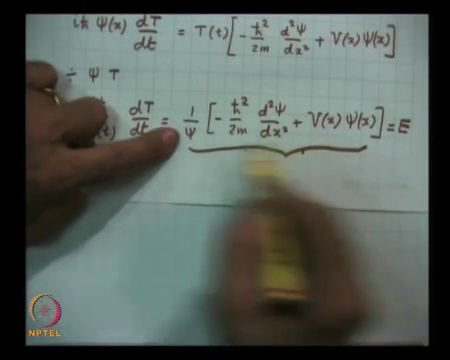 iħ Ψ(x) dT/dt = T(t) [ - ħ²/2m d²Ψ/dx² + V(x) Ψ(x) ]
÷ Ψ T
(t) dT/dt = 1/Ψ [ - ħ²/2m d²Ψ/dx² + V(x) Ψ(x) ] = E
NPTEL